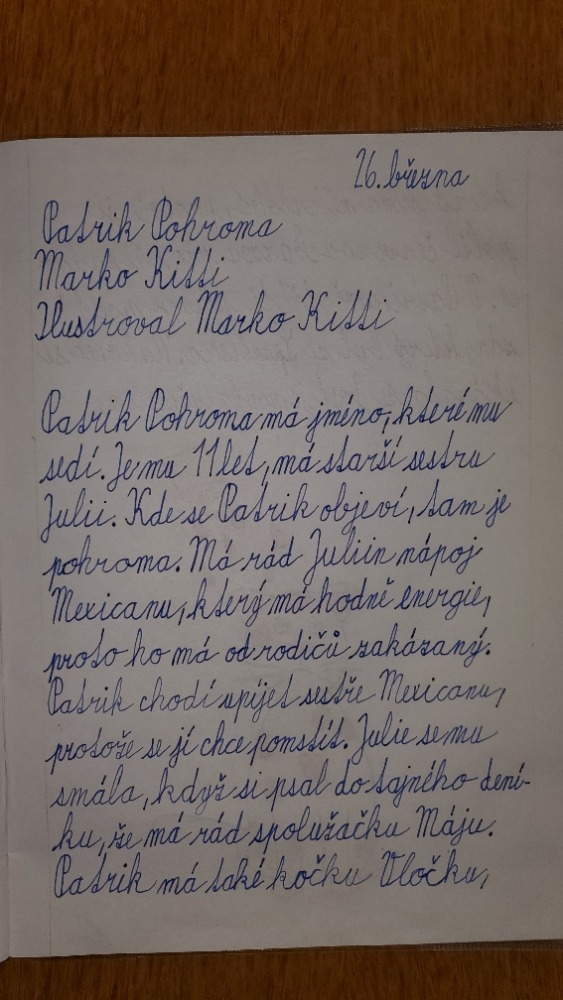 26. března
Patrik Pohroma
Marko Kitti
Ilustroval Marko Kitti
Patrik Pohroma má jméno, které mu
sedí. Je mu 11 let, má starší sestru
Julii. Kde se Patrik objeví, tam je
pohroma. Má rád Juliin nápoj
Mexicanu, který má hodně energie,
proto ho má od rodičů zakázaný.
Patrik chodí upíjet sestře Mexicanu,
protože se jí chce pomstít. Julie se mu
smála, když si psal do tajného dení-
ku, že má rád spolužačku Máju.
Patrik má také kočku Vločku,